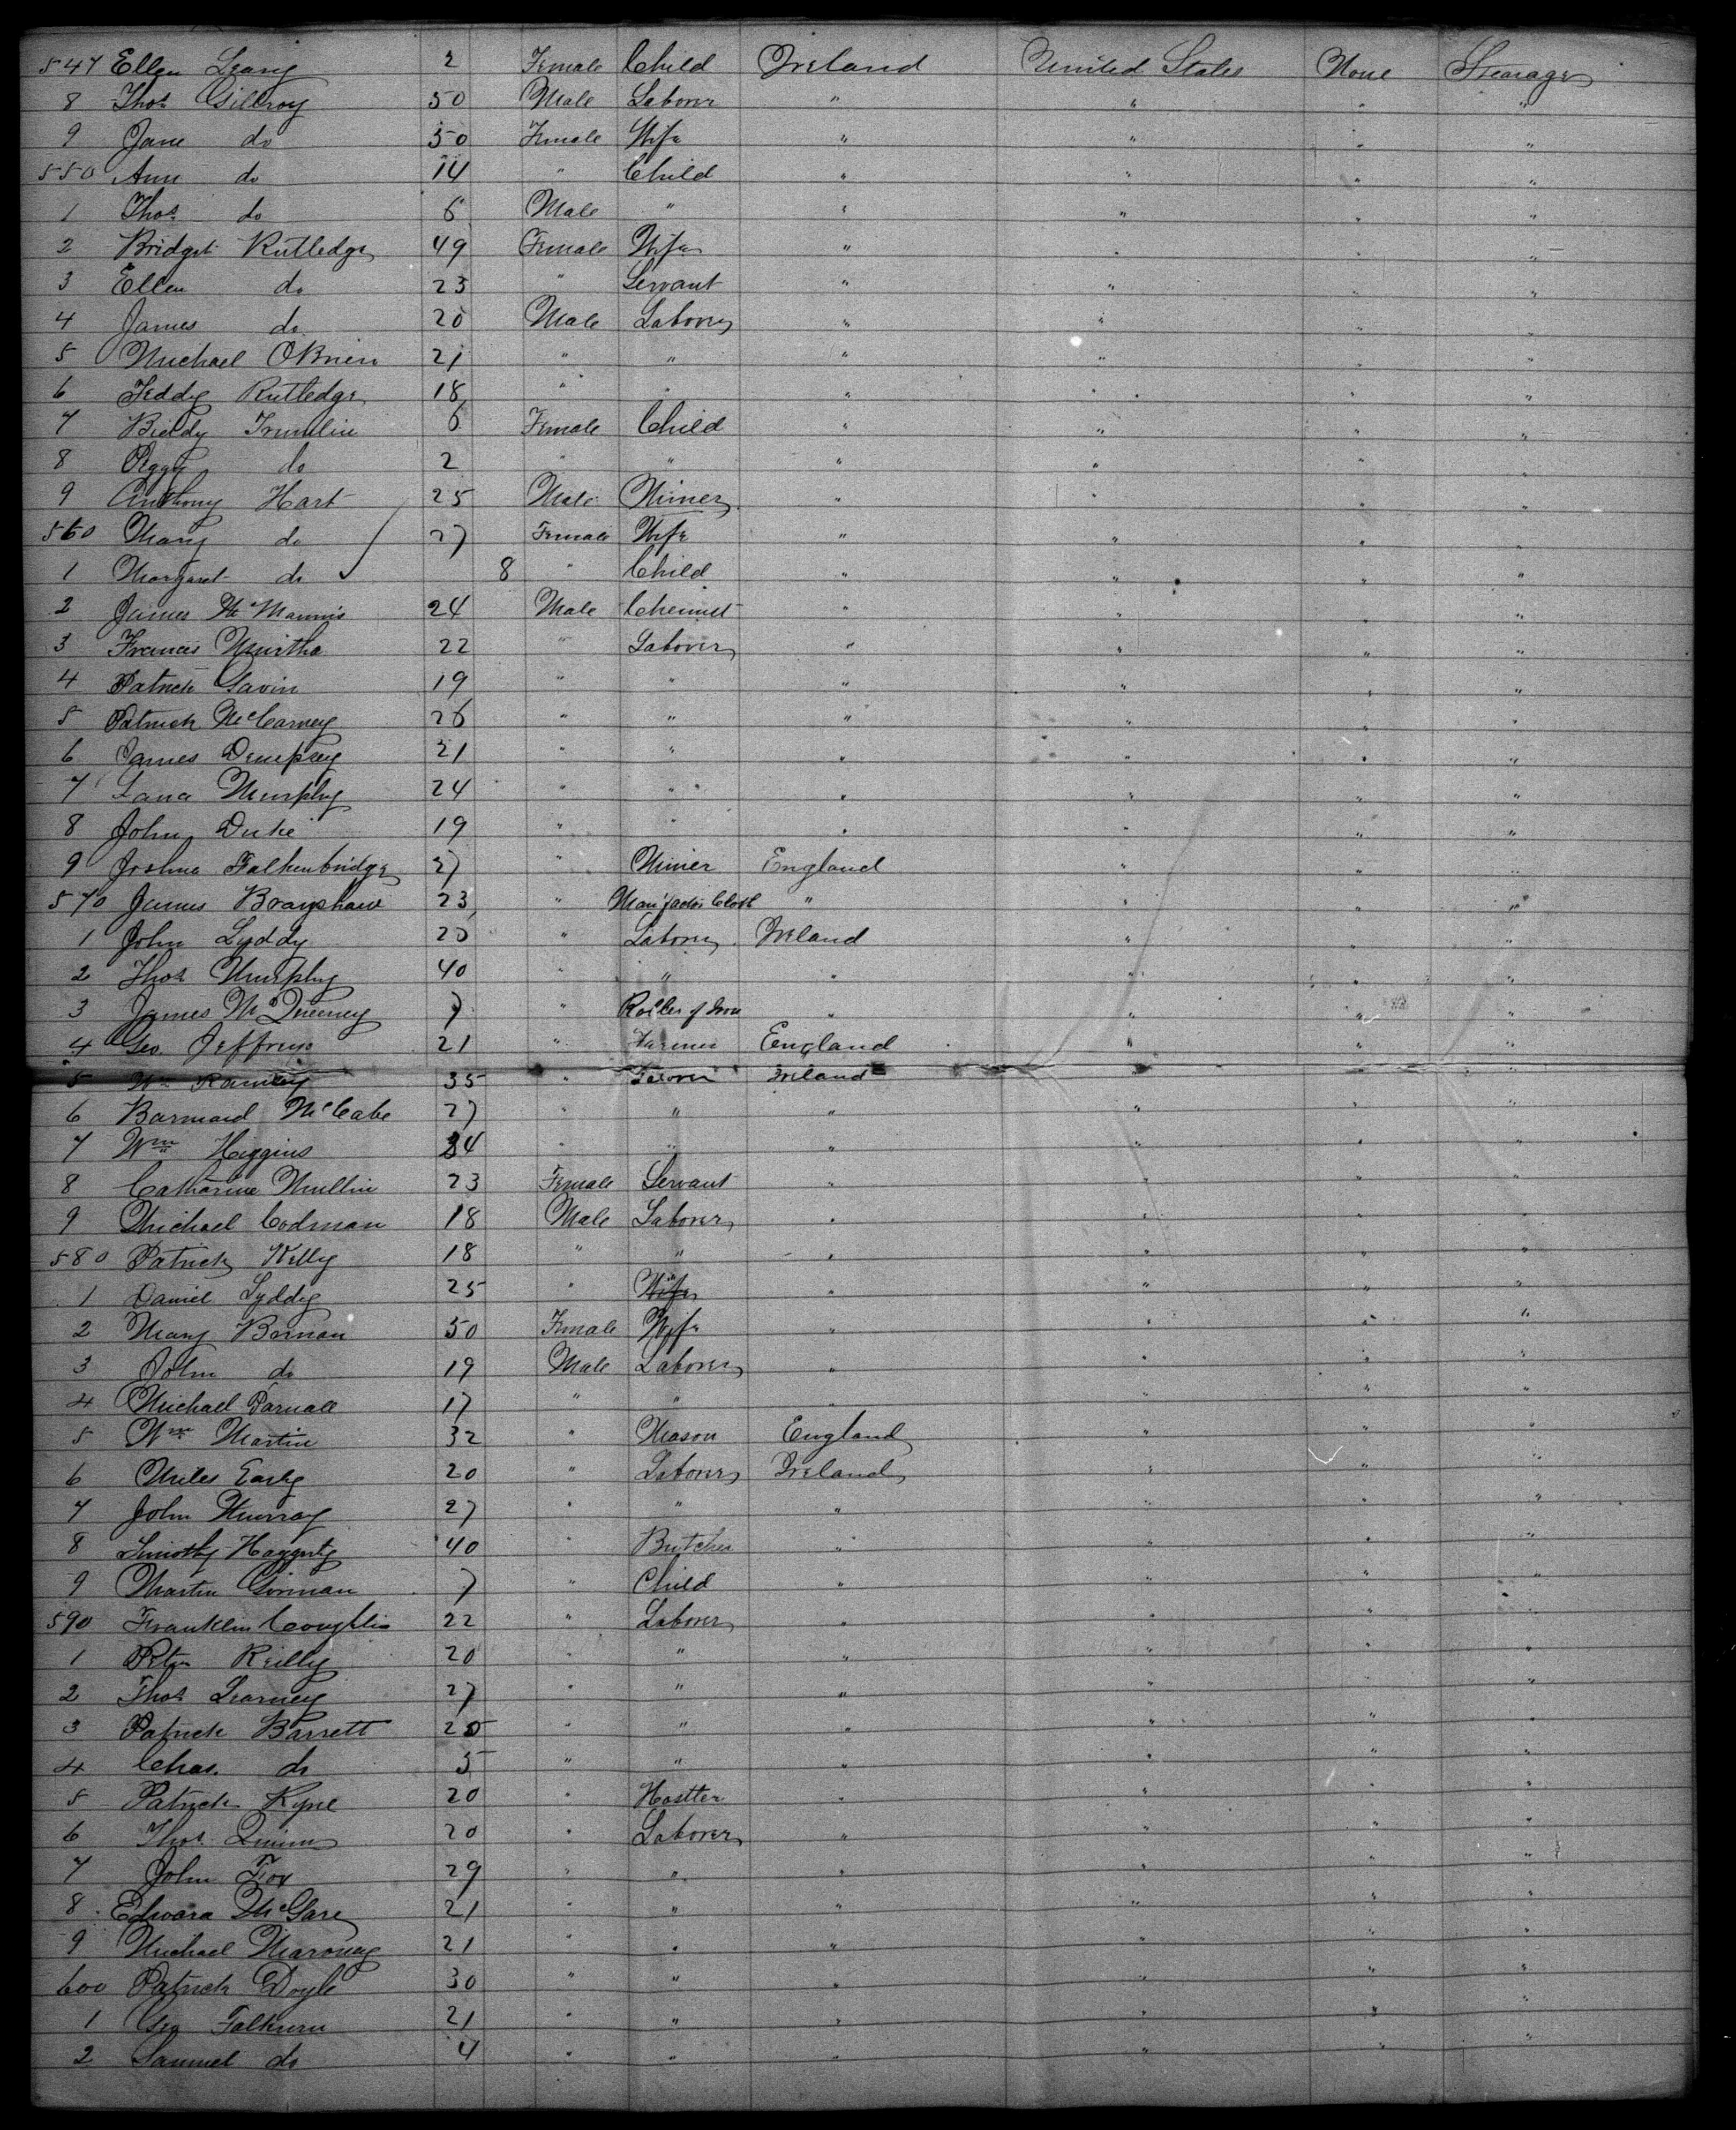 547 Ellen Leary 2 Female Child Ireland United States None Steerage
8 Thos Gillroy 50 Male Laborer " " " "
9 Jane do 50 Female Wife " " " "
550 Ann do 14 " Child " " " "
1 Thos do 6 Male " " " " "
2 Bridget Rutledge 49 Female Wife " " " "
3 Ellen do 23 " Servant " " " "
4 James do 20 Male Laborer " " " "
5 Michael OBrien 21 " " " " " "
6 Teddy Rutledge 18 " " " " " "
7 Biddy Trumlin 6 Female Child " " " "
8 Aggy do 2 " " " " " "
9 Anthony Hart 25 Male Miner " " " "
560 Mary do 27 Female Wife " " " "
1 Margaret do 8 " Child " " " "
2 James McMannis 24 Male Chemist " " " "
3 Francis Murtha 22 " Laborer " " " "
4 Patrick Gavin 19 " " " " " "
5 Patrick McCarney 26 " " " " " "
6 James Dempsey 21 " " " " " "
7 Lana Murphy 24 " " " " " "
8 John Duke 19 " " " " " "
9 Joshua Falkenbridge 27 " Miner England " " "
570 James Brayshaw 23 " Manufactor Cloth " " " "
1 John Lyddy 20 " Laborer Ireland " " "
2 Thos Murphy 40 " " " " " "
3 James McQueeney 7 " Roller of Iron " " " "
4 Geo. Jeffreys 21 " Farmer England " " "
5 Wm 35 " Laborer Ireland " " "
6 Barnard McCabe 27 " " " " " "
7 Wm Higgins 34 " " " " " "
8 Catharine Mullin 23 Female Servant " " " "
9 Michael Codman 18 Male Laborer " " " "
580 Patrick Kelly 18 " " " " " "
1 Daniel Lyddy 25 " Wife " " " "
2 Mary Bernan 50 Female Wife " " " "
3 John do 19 Male Laborer " " " "
4 Michael Parnall 17 " " " " " "
5 Wm Martin 32 " Mason England " " "
6 Miles Early 20 " Laborer Ireland " " "
7 John Murray 27 " " " " " "
8 Timothy Haggerty 40 " Butcher " " " "
9 Martin Gorman 7 " Child " " " "
590 Franklin Coughlin 22 " Laborer " " " "
1 Peter Reilly 20 " " " " " "
2 Thos Learney 27 " " " " " "
3 Patrick Barrett 25 " " " " " "
4 Chas. do 5 " " " " " "
5 Patrick Kyne 20 " Hostler " " " "
6 Thos Quinn 20 " Laborer " " " "
7 John Fox 29 " " " " " "
8 Edward McGare 21 " " " " " "
9 Michael Maroney 21 " " " " " "
600 Patrick Doyle 30 " " " " " "
1 Geo Falkurn 21 " " " " " "
2 Samuel do 4 " " " " " "